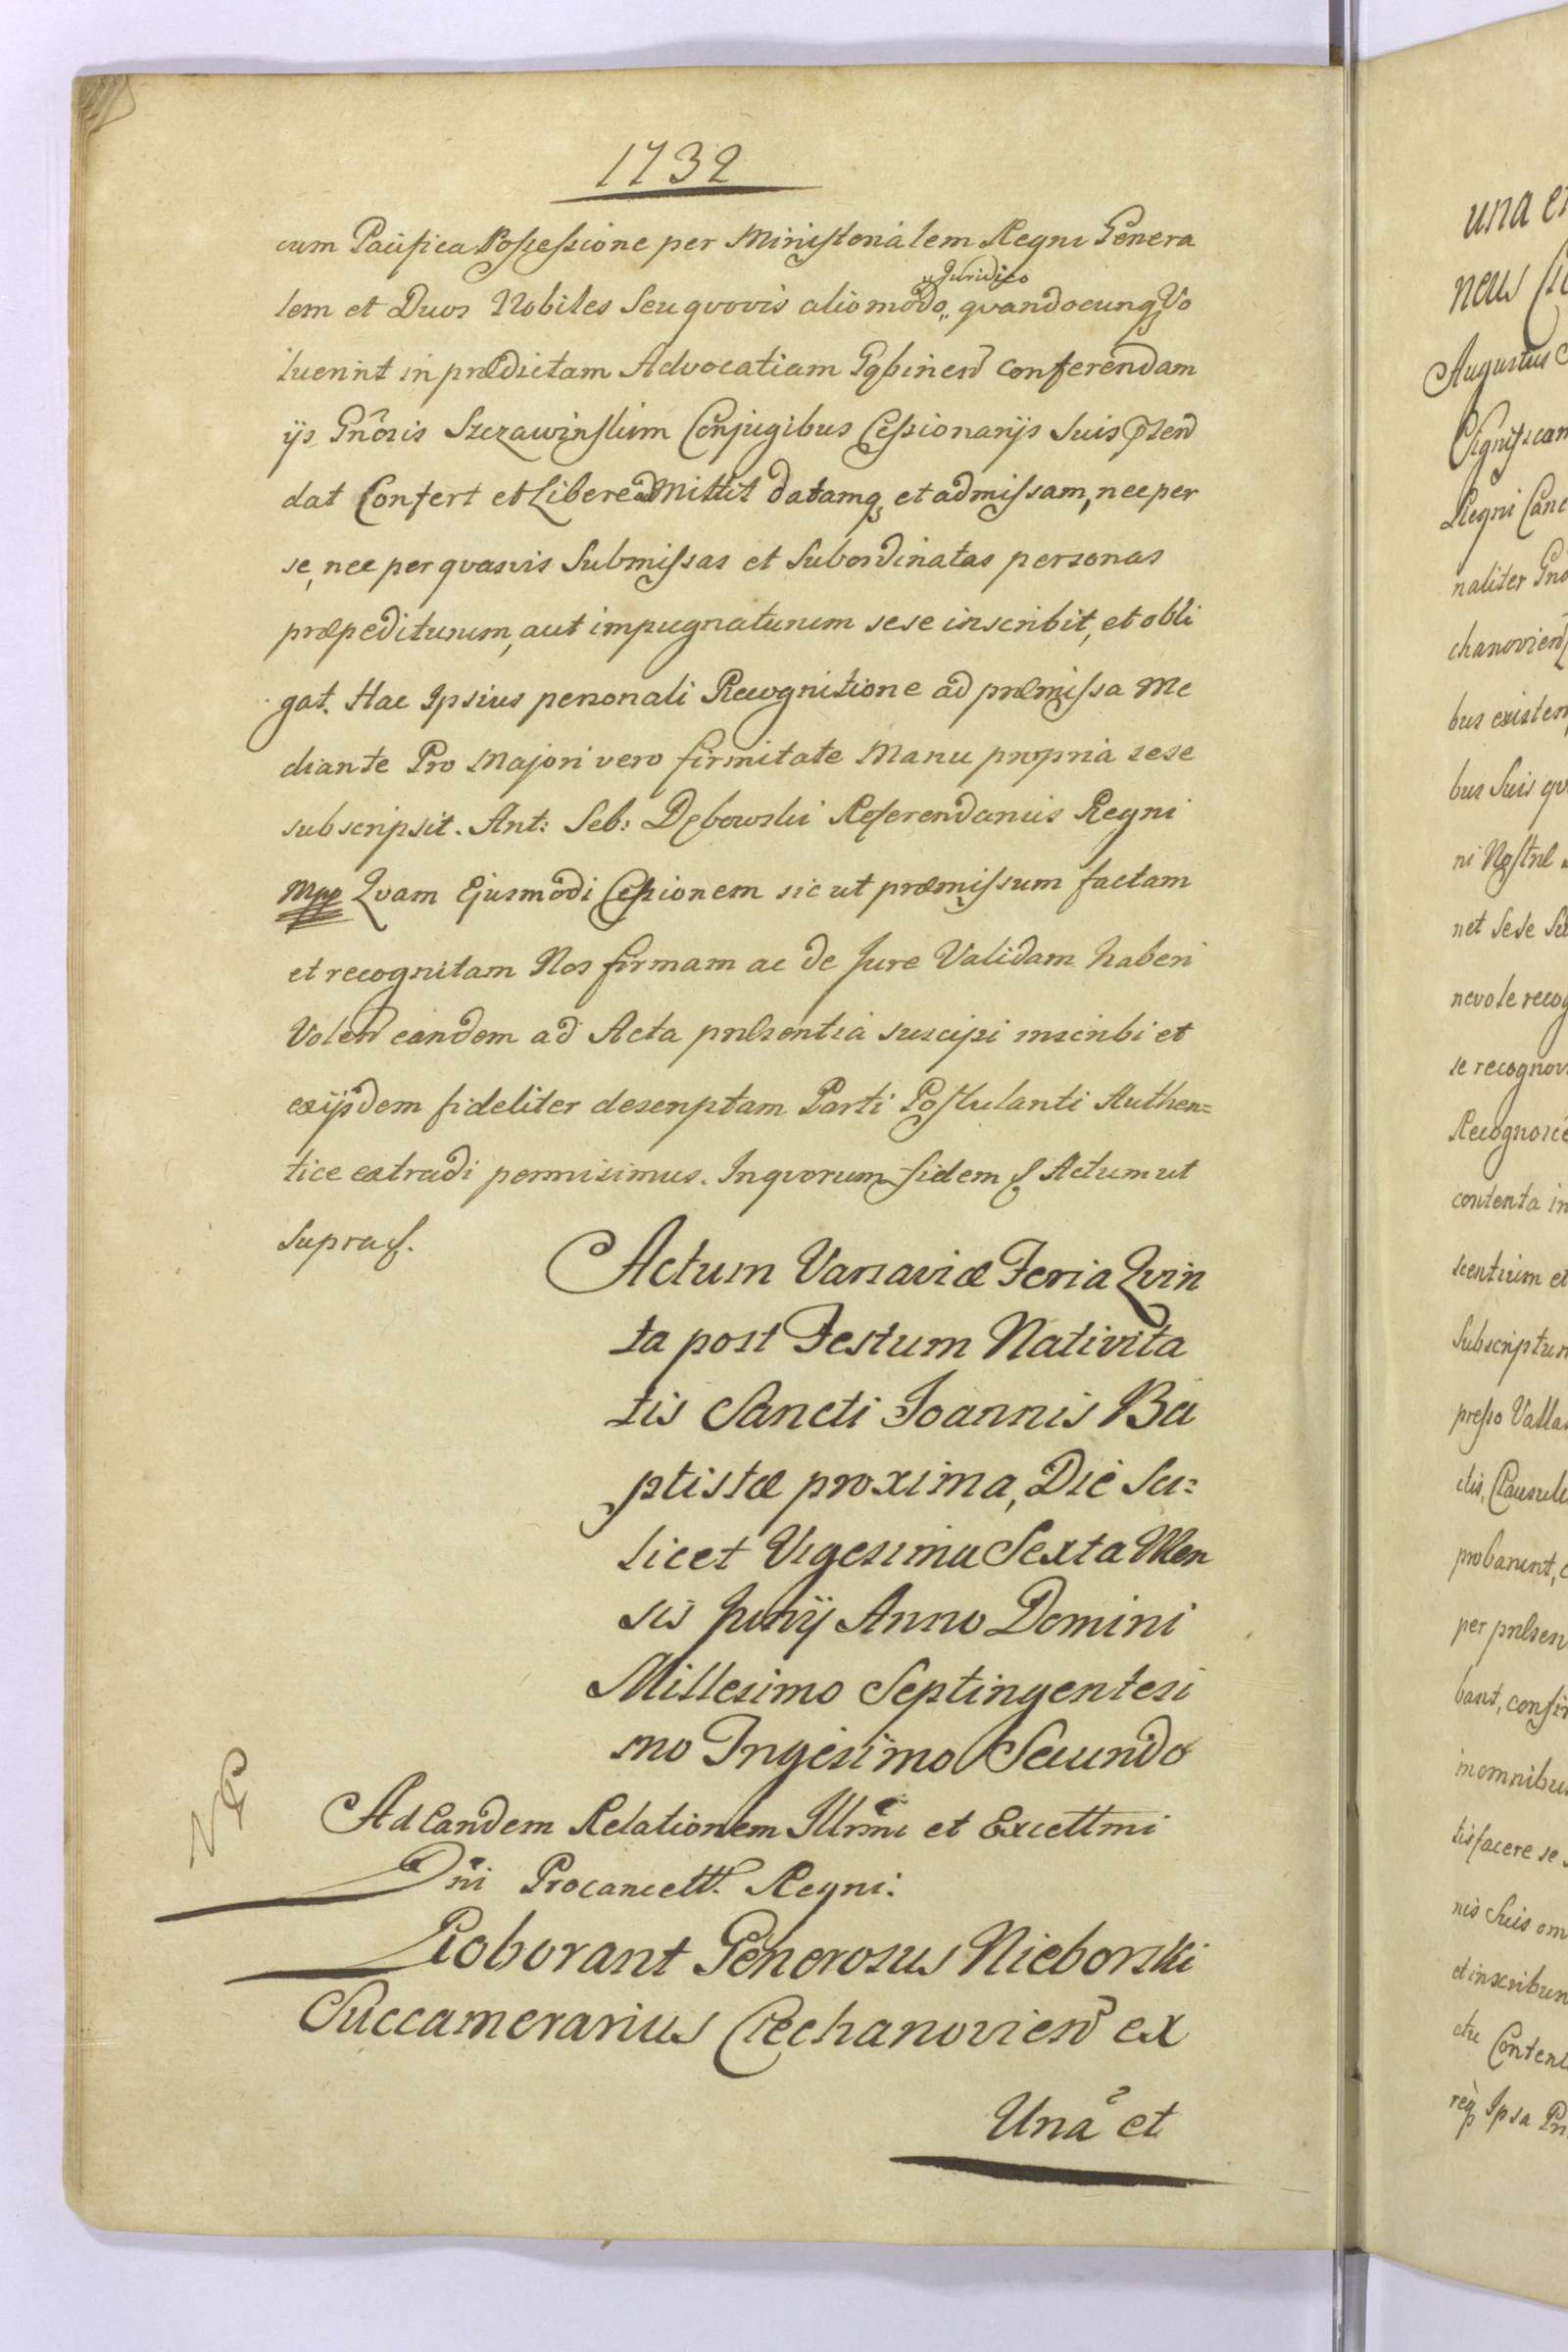 1732
cum Pacifica Possessione per Ministerialem Regni Genera
lem et Duos Nobiles Seu qvovis alio modo,, qvandocunq Vo
,,Juridico
luerint in prædictam Advocatiam conferendam
ijs Gnosis Szczawinskim Conjugibus Cessionarijs Suis
dat Confert et Libere admittit datamq et admissam, nec per
se, nec per qvasvis Submissas et Subordinatas personas
præpediturum, aut impugnaturum sese inscribit, et obli
gat. Hac Ipsius personali Recognitione ad præmissa Me
diante Pro Majori vero firmitate Manu propria sese
subscripsit. Ant: Seb: Dębowski Referendarius Regni
Mpp Qvam Ejusmodi Cessionem sic ut præmissum factam
et recognitam Nos firmam ac de Jure Validam haberi
Volen eandem ad Acta præsentia suscipi inscribi et
exijsdem fideliter descriptam Parti Postulanti Authen=
tice extradi permisimus. In qvorum fidem & Actum ut
Supra &.
Actum Varsaviæ Feria Qvin
ta post Festum Nativita
tis Sancti Joannis Ba
ptistæ proxima, Die Sci=
licet Vigesima Sexta Men
sis Junij Anno Domini
Millesimo Septingentesi
mo Trigesimo Secundo
Ad Eandem Relationem Illrmi et Excellmi
Dni Procancell. Regni.
Roborant Generosus Nieborski
Succamerarius Ciechanovien ex
Una et
una e
neus
Augustus
Significam
Regni Canc
naliter Gno
chanovien
bus existen
bus Suis qv
ni Nostræ
net Sese Su
nevole recog
se recognov
Recognosce
contenta in
scentium et
Subscriptum
presso Valla
ctis, Clausulis
probarunt,
per præsen
bant, confir
in omnibus
tisfacere se
nis Suis om
et inscribun
ctu Content
req Ipsa Pr